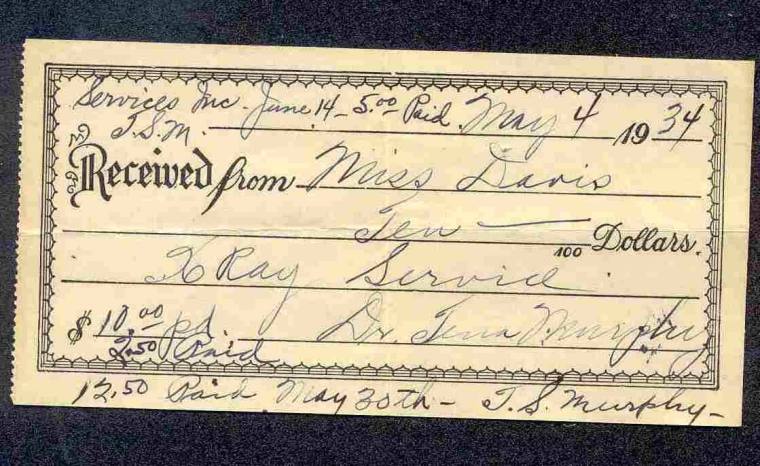 Services Inc. June 14 - 5.00 Paid. May 4 1934
T.S.M.
Received from Miss Davis
Ten — 100 Dollars.
X Ray Service
$10.00 pd. Dr. Tena Murphy
2.50 Paid
12.50 Paid May 30th - T.S. Murphy -